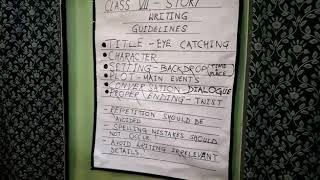 CLASS VII - STORY
WRITING
GUIDELINES
TITLE - EYE CATCHING
CHARACTER
SETTING - BACKDROP TIME PLACE
PLOT - MAIN EVENTS
CONVERSATION DIALOGUE
PROPER ENDING - TWIST
- REPETITION SHOULD BE
AVOIDED
- SPELLING MISTAKES SHOULD
NOT OCCUR
- AVOID WRITING IRRELEVANT
DETAILS.